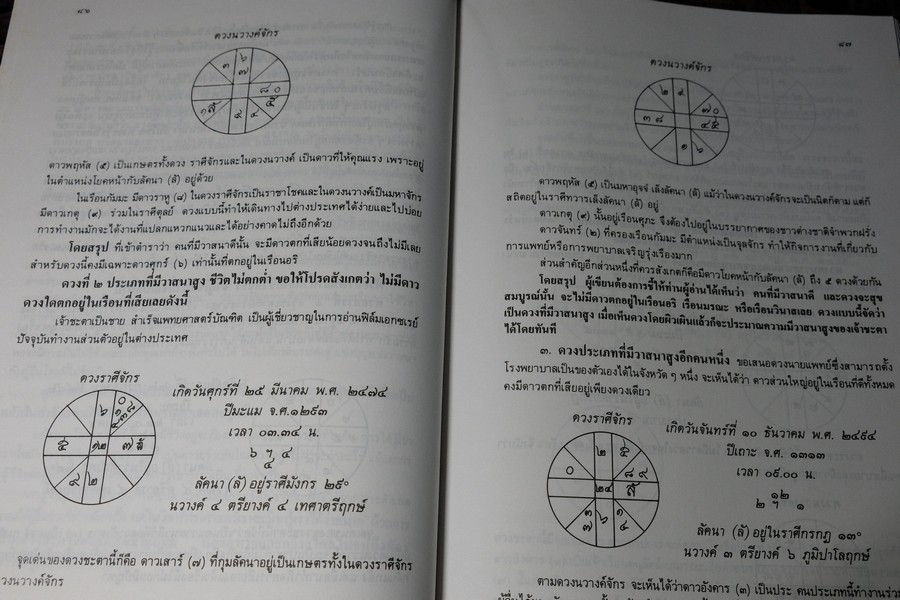 ๘๖
ดวงนวางค์จักร
ดาวพฤหัส (๕) เป็นเกษตรทั้งดวง ราศีจักรและในดวงนวางค์ เป็นดาวที่ให้คุณแรง เพราะอยู่
ในตำแหน่งโยคหน้ากับลัคนา (ลั) อยู่ด้วย
ในเรือนกัมมะ มีดาวราหู (๘) ในดวงราศีจักรเป็นราชาโชคและในดวงนวางค์เป็นมหาจักร
มีดาวเกตุ (๙) ร่วมในราศีตุลย์ ดวงแบบนี้ทำให้เดินทางไปต่างประเทศได้ง่ายและไปบ่อย
การทำงานมักจะได้งานที่แปลกแหวกแนวและได้อย่างคาดไม่ถึงอีกด้วย
โดยสรุป ที่เข้าตำราว่า คนที่มีวาสนาดีนั้น จะมีดาวตกที่เสียน้อยดวงจนถึงไม่มีเลย
สำหรับดวงนี้คงมีเฉพาะดาวศุกร์ (๖) เท่านั้นที่ตกอยู่ในเรือนอริ
ดวงที่ ๒ ประเภทที่มีวาสนาสูง ชีวิตไม่ตกต่ำ ขอให้โปรดสังเกตว่า ไม่มีดาว
ดวงใดตกอยู่ในเรือนที่เสียเลยดังนี้
เจ้าชะตาเป็นชาย สำเร็จแพทยศาสตร์บัณฑิต เป็นผู้เชี่ยวชาญในการอ่านฟิล์มเอกซเรย์
ปัจจุบันทำงานส่วนตัวอยู่ในต่างประเทศ
ดวงราศีจักร
เกิดวันศุกร์ที่ ๒๕ มีนาคม พ.ศ. ๒๔๗๔
ปีมะแม จ.ศ.๑๒๙๓
เวลา ๐๓.๓๔ น.
๖ ฯ ๔
๕
ลัคนา (ลั) อยู่ราศีมังกร ๒๙°
นวางค์ ๔ ตรียางค์ ๔ เทศาตรีฤกษ์
จุดเด่นของดวงชะตานี้ก็คือ ดาวเสาร์ (๗) ที่กุมลัคนาอยู่เป็นเกษตรทั้งในดวงราศีจักร
วงนวางค์จักร
๘๗
ดวงนวางค์จักร
ดาวพฤหัส (๕) เป็นมหาอุจจ์ เล็งลัคนา (ลั) แม้ว่าในดวงนวางค์จักรจะเป็นนิตก็ตาม แต่ก็
สถิตอยู่ในราศีทวารเล็งลัคนา (ลั) อยู่
ดาวเกตุ (๙) นั้นอยู่เรือนศุภะ จึงต้องไปอยู่ในบรรยากาศของชาวต่างชาติจำพวกฝรั่ง
ดาวจันทร์ (๒) ที่ครองเรือนกัมมะ มีตำแหน่งเป็นจุลจักร ทำให้กิจการงานที่เกี่ยวกับ
การแพทย์หรือการพยาบาลเจริญรุ่งเรืองมาก
ส่วนสำคัญอีกส่วนหนึ่งที่ควรสังเกตก็คือมีดาวโยคหน้ากับลัคนา (ลั) ถึง ๕ ดวงด้วยกัน
โดยสรุป ผู้เขียนต้องการชี้ให้ท่านผู้อ่านได้เห็นว่า คนที่มีวาสนาดี และดวงจะสุข
สมบูรณ์นั้น จะไม่มีดาวตกอยู่ในเรือนอริ เรือนมรณะ หรือเรือนวินาสเลย ดวงแบบนี้จัดว่า
เป็นดวงที่มีวาสนาสูง เมื่อเห็นดวงโดยผิวเผินแล้วก็จะประมาณความมีวาสนาสูงของเจ้าชะตา
ได้โดยทันที
๓. ดวงประเภทที่มีวาสนาสูงอีกคนหนึ่ง ขอเสนอดวงนายแพทย์ซึ่งสามารถตั้ง
โรงพยาบาลเป็นของตัวเองได้ในจังหวัด ๆ หนึ่ง จะเห็นได้ว่า ดาวส่วนใหญ่อยู่ในเรือนที่ดีทั้งหมด
คงมีดาวตกที่เสียอยู่เพียงดวงเดียว
ดวงราศีจักร
เกิดวันจันทร์ที่ ๑๐ ธันวาคม พ.ศ. ๒๔๙๔
ปีเถาะ จ.ศ. ๑๓๑๓
เวลา ๐๙.๐๐ น.
๑๒
๒ ฯ ๑
ลัคนา (ลั) อยู่ในราศีกรกฎ ๑๓°
นวางค์ ๓ ตรียางค์ ๖ ภูมิปาโลฤกษ์
ตามดวงนวางค์จักร จะเห็นได้ว่าดาวอังคาร (๓) เป็นประ คนประเภทนี้ทำงานร่วม